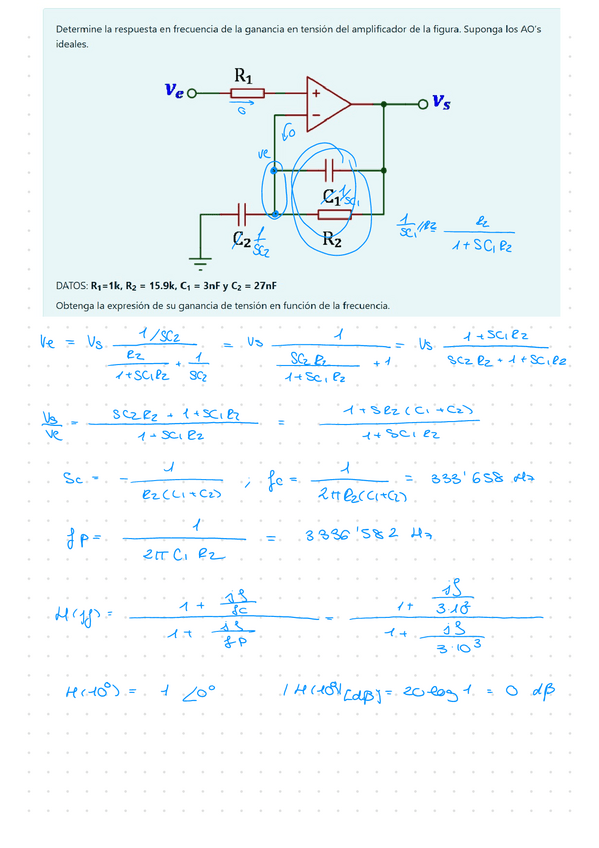 Determine la respuesta en frecuencia de la ganancia en tensión del amplificador de la figura. Suponga los AO's
ideales.
R₁
Ve
0
+
-
Vs
0
ve
C₁ 1/SC₁
C₂ 1/SC₂
R₂
1/SC₁ // R₂ R₂/(1+SC₁R₂)
DATOS: R₁=1k, R₂ = 15.9k, C₁ = 3nF y C₂ = 27nF
Obtenga la expresión de su ganancia de tensión en función de la frecuencia.
Ve = Vs (1/SC₂)/(R₂/(1+SC₁R₂) + 1/SC₂) = Vs 1/(SC₂R₂/(1+SC₁R₂) + 1) = Vs (1+SC₁R₂)/(SC₂R₂ + 1 + SC₁R₂)
Vs/Ve = (SC₂R₂ + 1 + SC₁R₂)/(1+SC₁R₂) = (1+SR₂(C₁+C₂))/(1+SC₁R₂)
Sc = - 1/(R₂(C₁+C₂)) ; fc = 1/(2πR₂(C₁+C₂)) = 333'658 Hz
fp = 1/(2πC₁R₂) = 3336'582 Hz
H(jf) = (1 + jf/fc)/(1 + jf/fp) = (1 + jf/3·10²)/(1 + jf/3·10³)
H(10⁰) = 1 ∠0° |H(10⁰)|[dB] = 20 log 1 = 0 dB